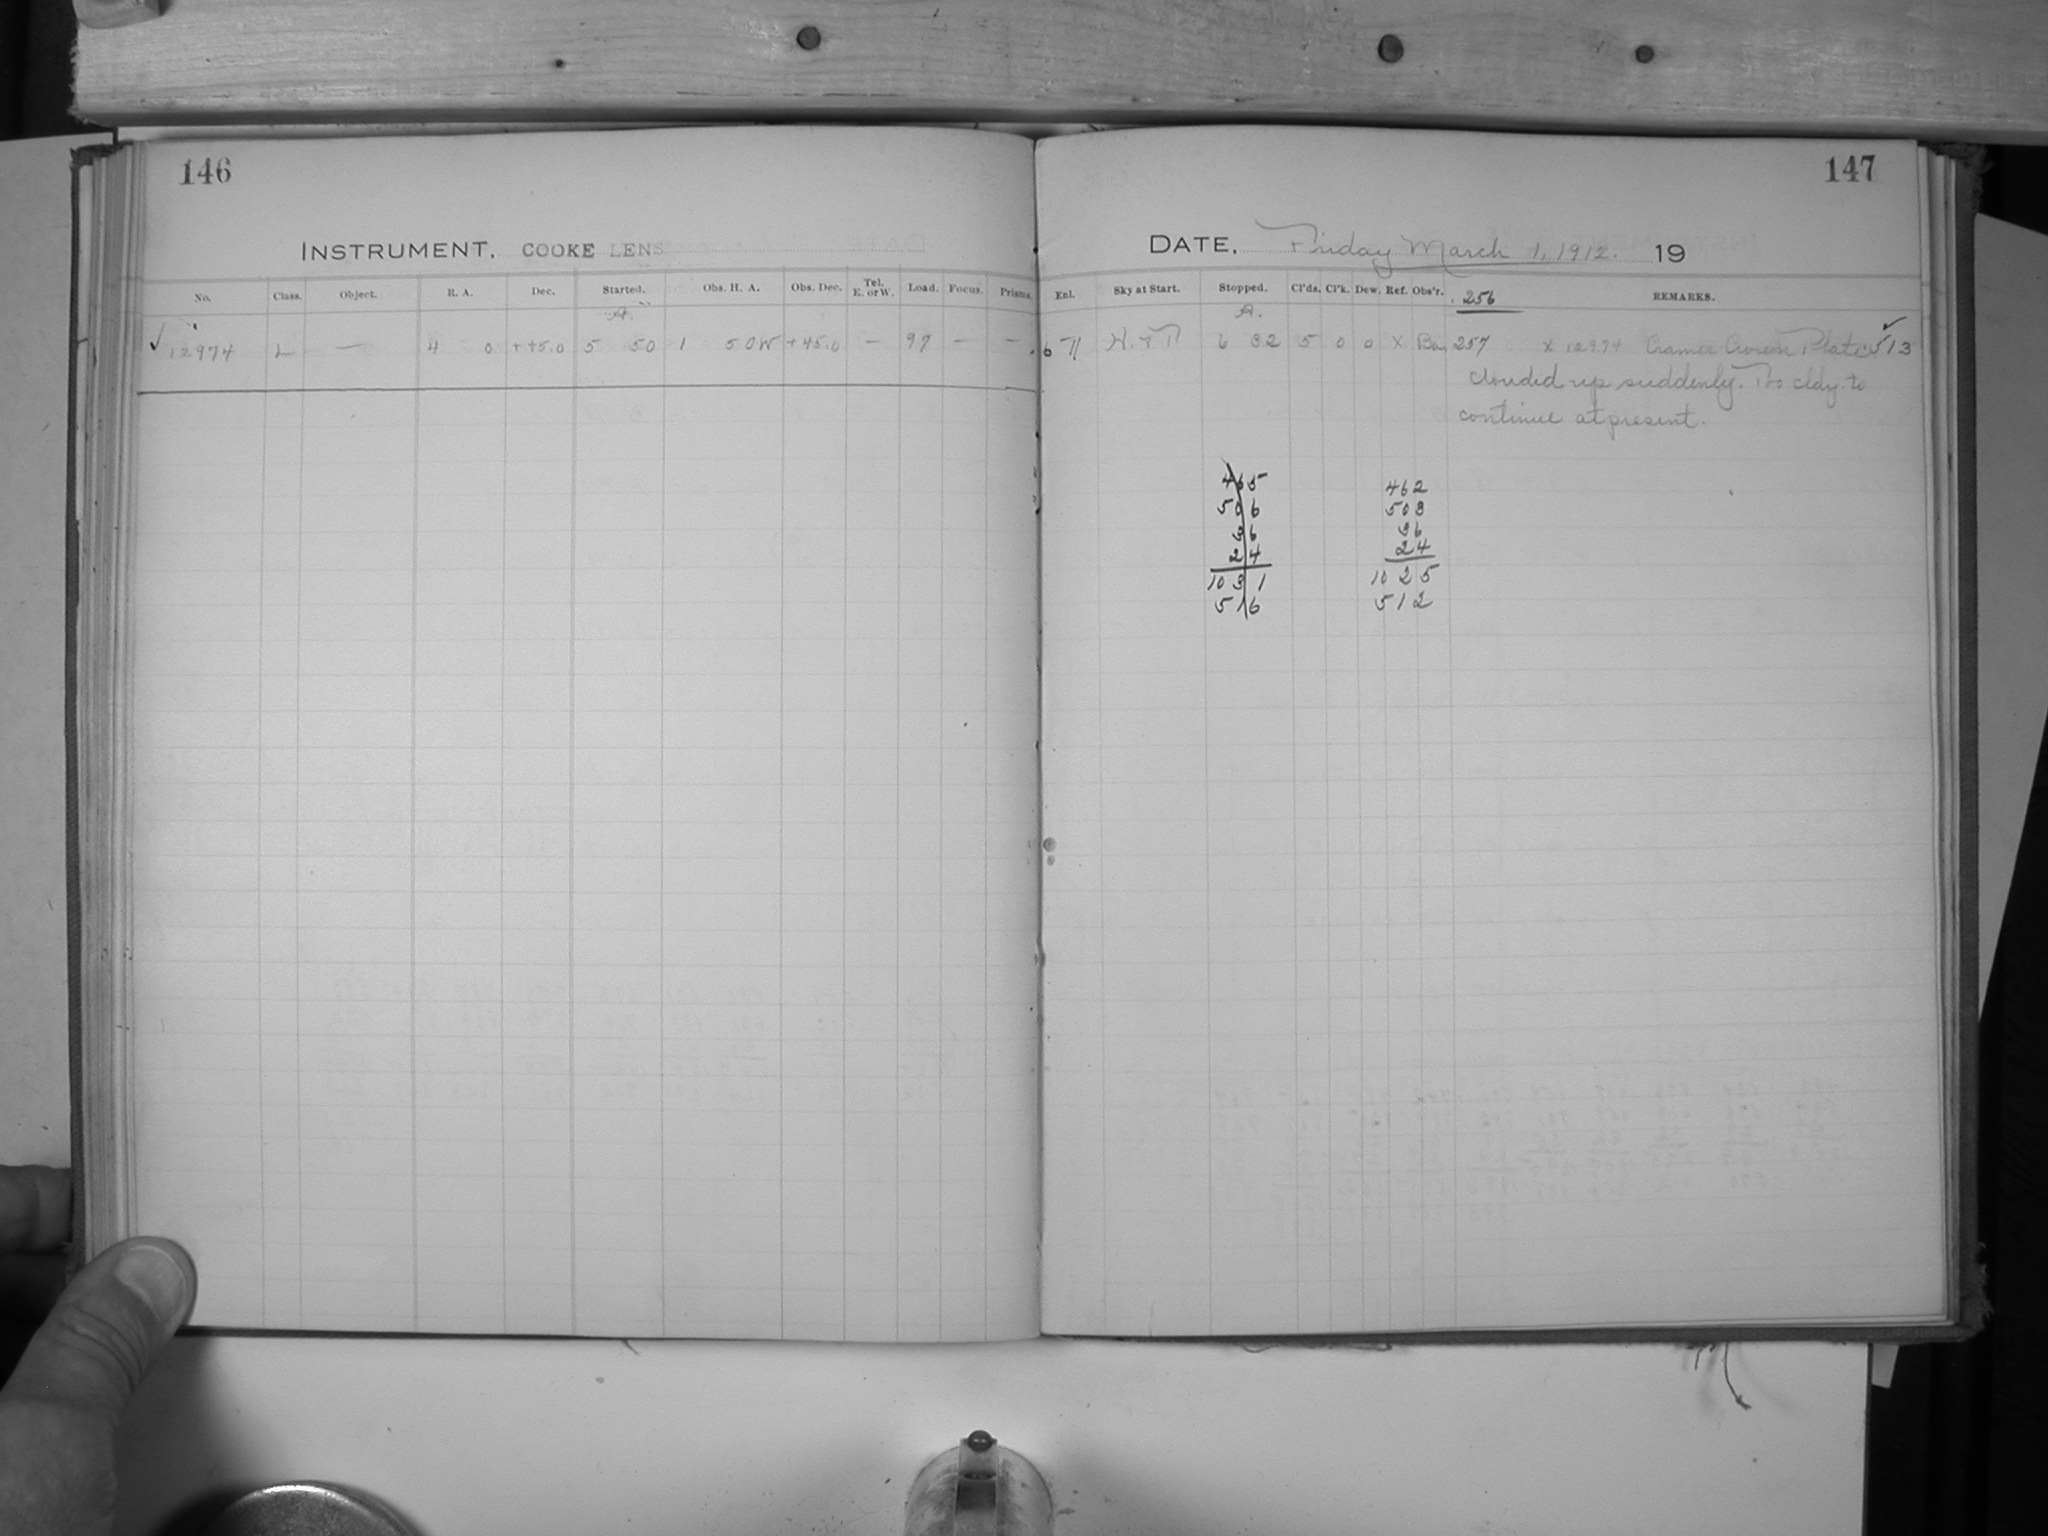 146
INSTRUMENT. COOKE LENS
No. Class. Object. R. A. Dec. Started. Obs. H. A. Obs. Dec. Tel. E. or W. Load. Focus. Prisms.
A.
✓ 12974 L — 4 0 +45.0 5 50 1 50W +45.0 — 97 — —
147
DATE, Friday March 1, 1912. 19
Enl. Sky at Start. Stopped. Cl'ds. Cl'k. Dew. Ref. Obs'r. 256 REMARKS.
A.
6 32 5 0 0 X 257 x 12974 Cramer Crown Plate ✓ 513
Clouded up suddenly. Too cldy. to
continue at present.
465 462
506 503
36 36
24 24
1031 1025
516 512